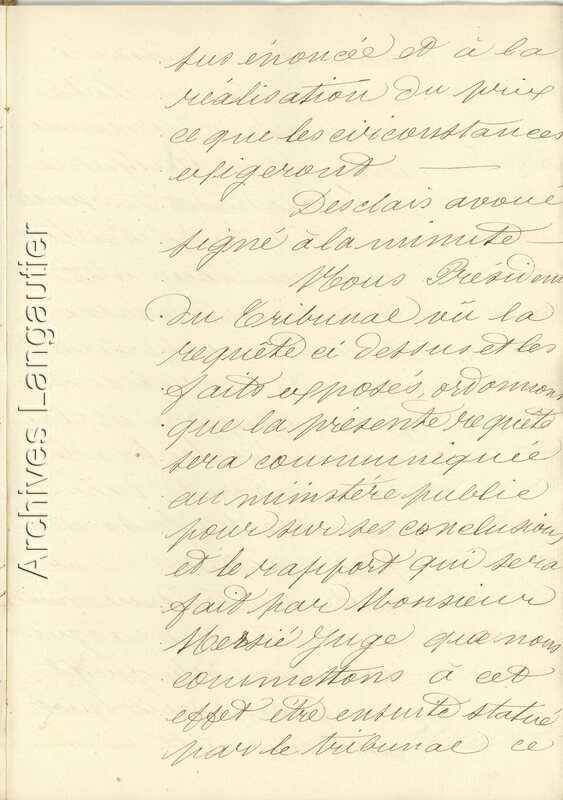 sus énoncée et à la
réalisation du prix
ce que les circonstances
exigeront —
Desclais avoué
signé à la minute —
Nous Président
du Tribunal vû la
requête ci dessus et les
faits exposés, ordonnons
que la présente requête
sera communiquée
au ministére public
pour sur ses conclusions
et le rapport qui sera
fait par Monsieur
Juge que nous
commettons à cet
effet être ensuite statué
par le tribunal ce
Archives Langautier